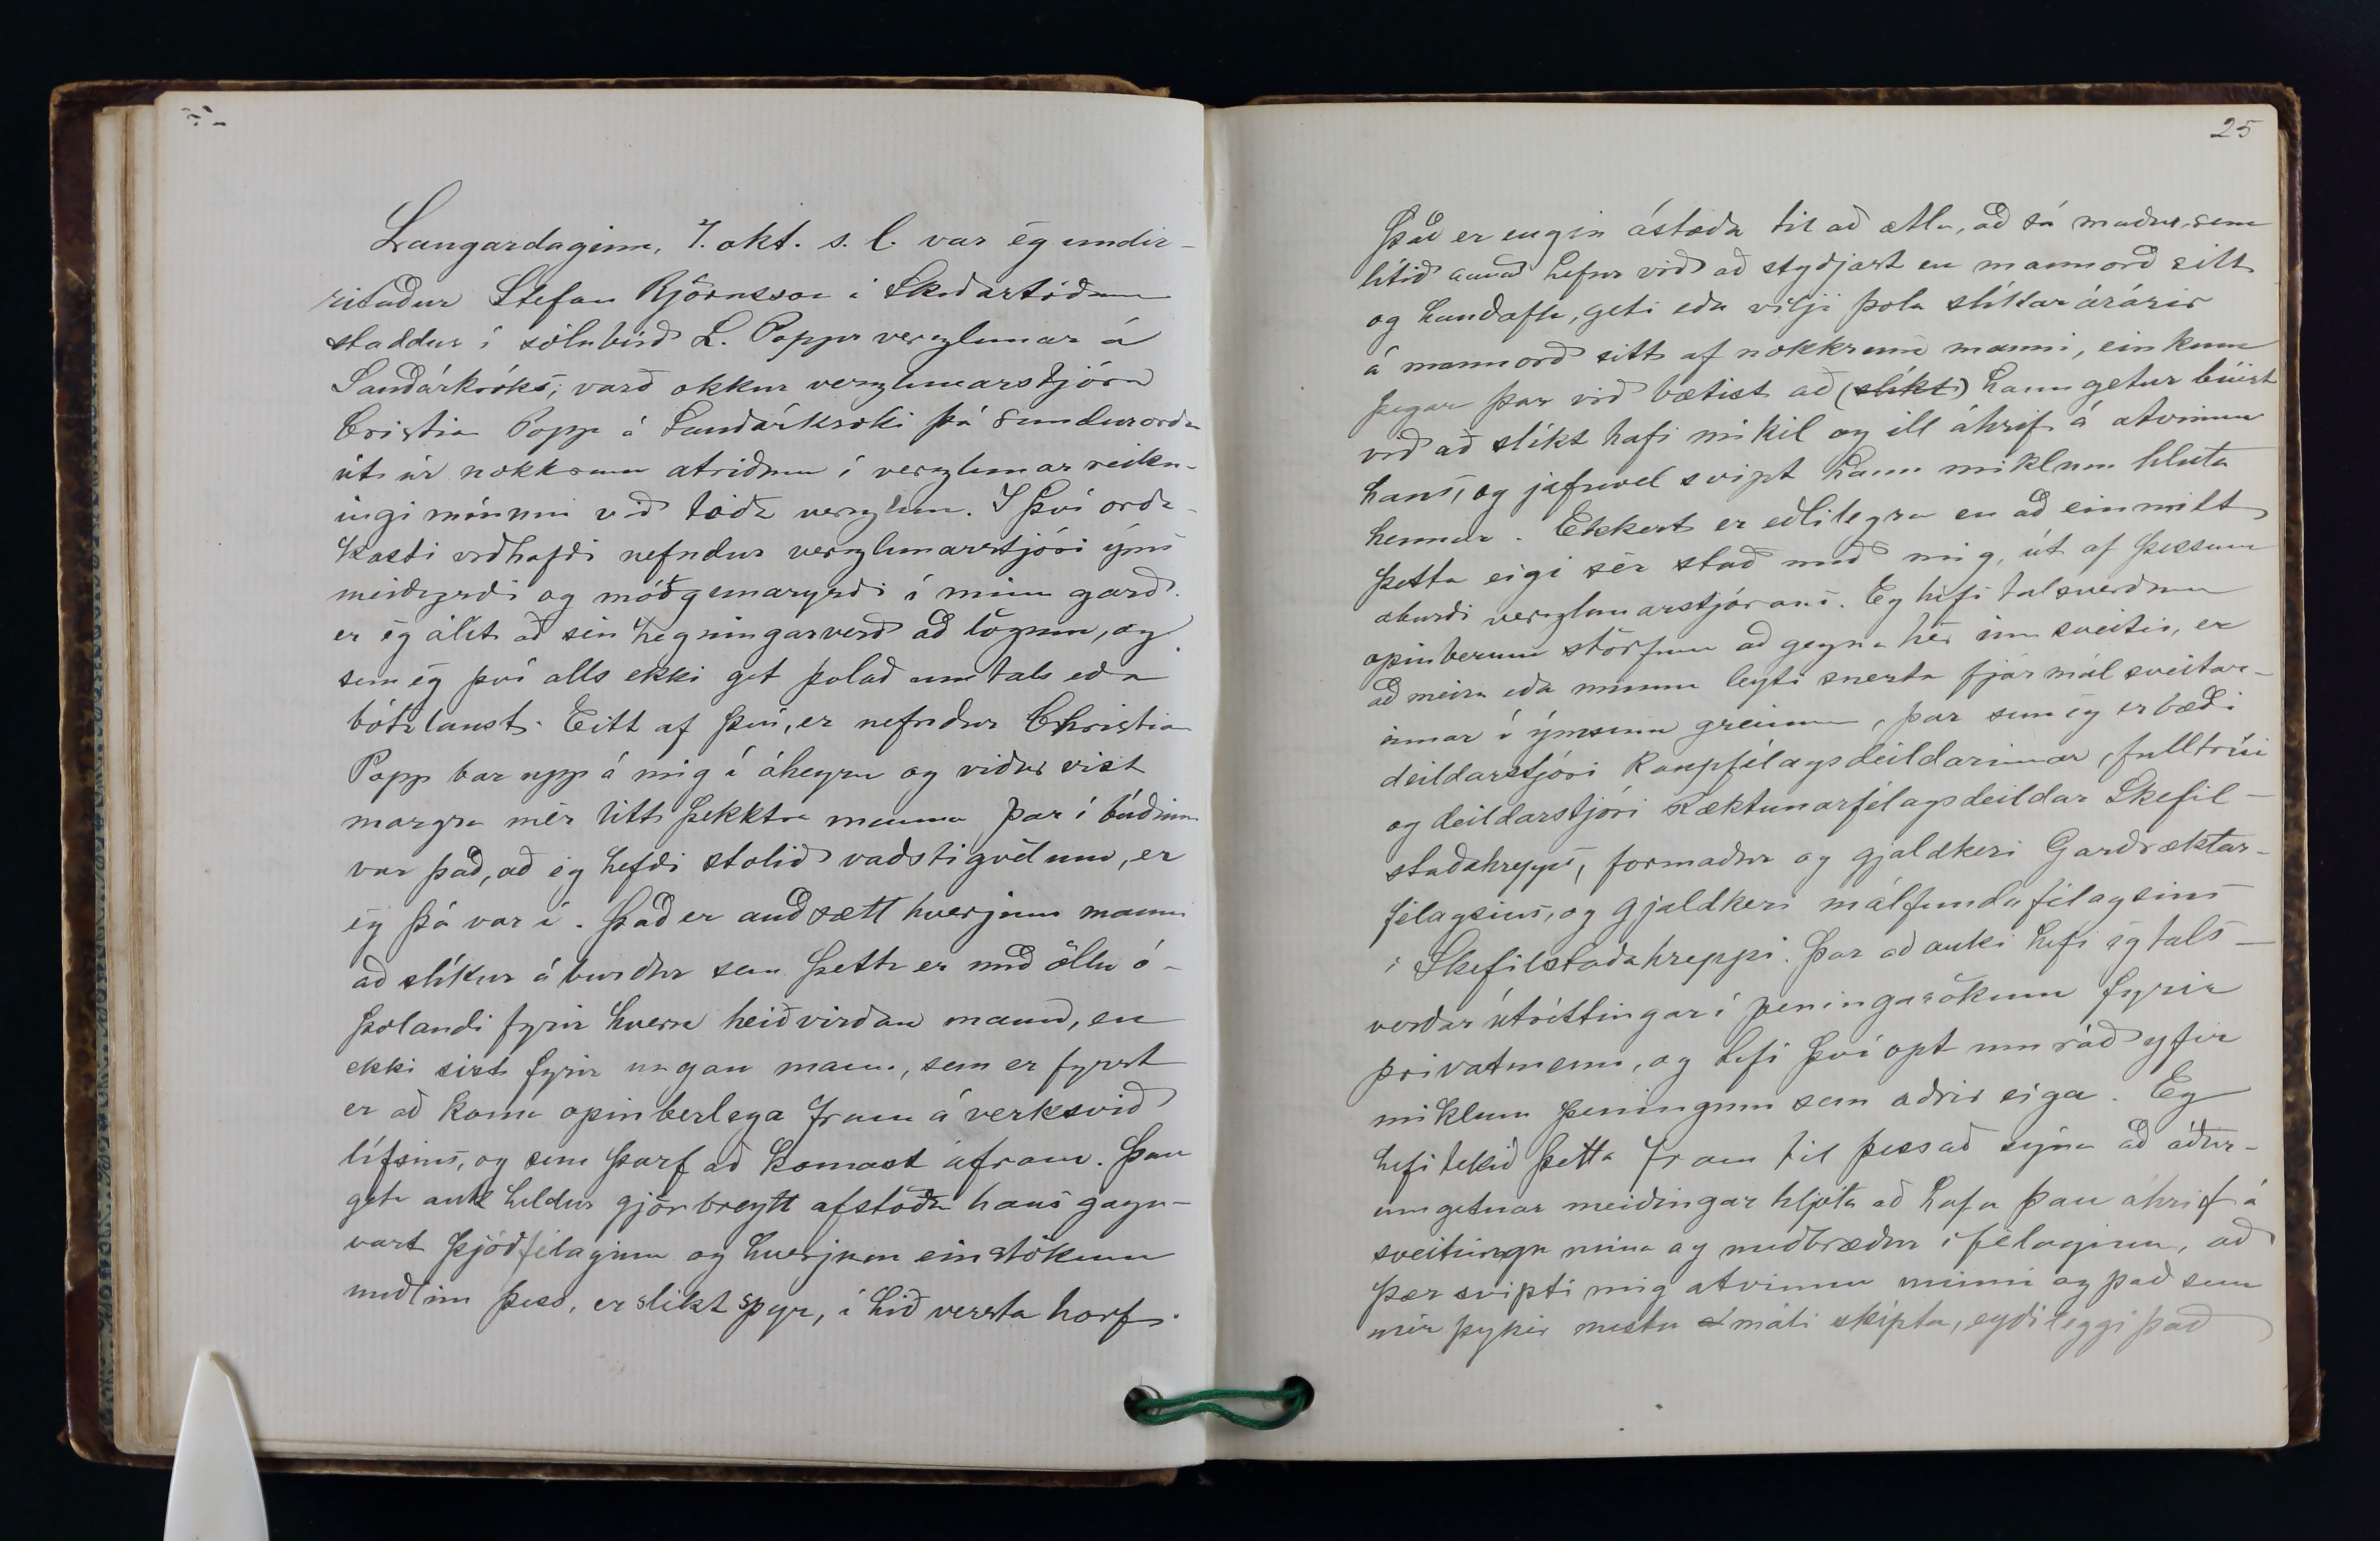 Laugardaginn, 7. okt. s. l. var ég undir-
ritaður Stefan Björnsson á Skíðastöðum
staddur í sölubúð L. Popps verzlunar á
Sauðárkróks; varð okkur verzlunarstjóra
Cristian Popp á Sauðárkróki þá sundurorða
út úr nokkrum atriðum í verzlunar reikn-
ingi mínum við téða verzlun. Í því orða-
kasti viðhafði nefndur verzlunarstjóri ýms
meiðyrði og móðgunaryrði í minn garð.
er ég álít að séu hegningarverð að lögum, og
sem ég því alls ekki get þolað umtals eða
bótalaust. Eitt af því, er nefndur Christian
Popp bar upp á mig í áheyrn og viðurvist
margra mér lítt þekktra manna þar í búðinni
var það, að ég hefði stolið vaðstígvélum, er
ég þá var í. Það er auðsætt hverjum manni
að slíkur áburður sem þetta er með öllu ó-
þolandi fyrir hvern heiðvirðan mann, en
ekki sízt fyrir ungan mann, sem er fyrst
er að koma opinberlega fram á verksvið
lífsins, og sem þarf að komast áfram. Þau
geta auk heldur gjörbreytt afstöðu hans gagn-
vart þjóðfélaginu og hverjum einstökum
meðlim þess, er slíkt spyr, í hið versta horf.
25
Það er engin ástæða til að ætla, að sá maður, sem
lítið annað hefur við að styðjast en mannorð sitt
og handafla, geti eða vilji þola slíkar árásir
á mannorð sitt af nokkrum manni, einkum
þegar þar við bætist að (slíkt) hann getur búist
við að slíkt hafi mikil og ill áhrif á atvinnu
hans, og jafnvel svipt hann miklum hluta
hennar. Ekkert er eðlilegra en að einmitt
þetta eigi sér stað með mig, út af þessum
áburði verzlunarstjórans. Eg hefi talsverðum
opinberum störfum að gegna hér inn sveitis, er
að meira eða minna leyti snerta fjármál sveitar-
innar í ýmsum greinum, þar sem ég er bæði
deildarstjóri Kaupfélagsdeildarinnar, fulltrúi
og deildarstjóri Ræktunarfélagsdeildar Skefil-
staðahrepps, formaður og gjaldkeri Garðræktar-
félagsins, og gjaldkeri málfundafélagsins
í Skefilstaðahreppi. Þar að auki hefi ég tals-
verðar útréttingar í peningasökum fyrir
privatmenn, og hefi því opt um ráð yfir
miklum peningum sem aðrir eiga. Eg
hefi tekið þetta fram til þess að sýna að áður-
umgetnar meiðingar hljóta að hafa þau áhrif á
sveitunga mína og meðbræður í félaginu, að
þær svipti mig atvinnu minni og það sem
mér þykir mestu máli skipta, eyðileggi það